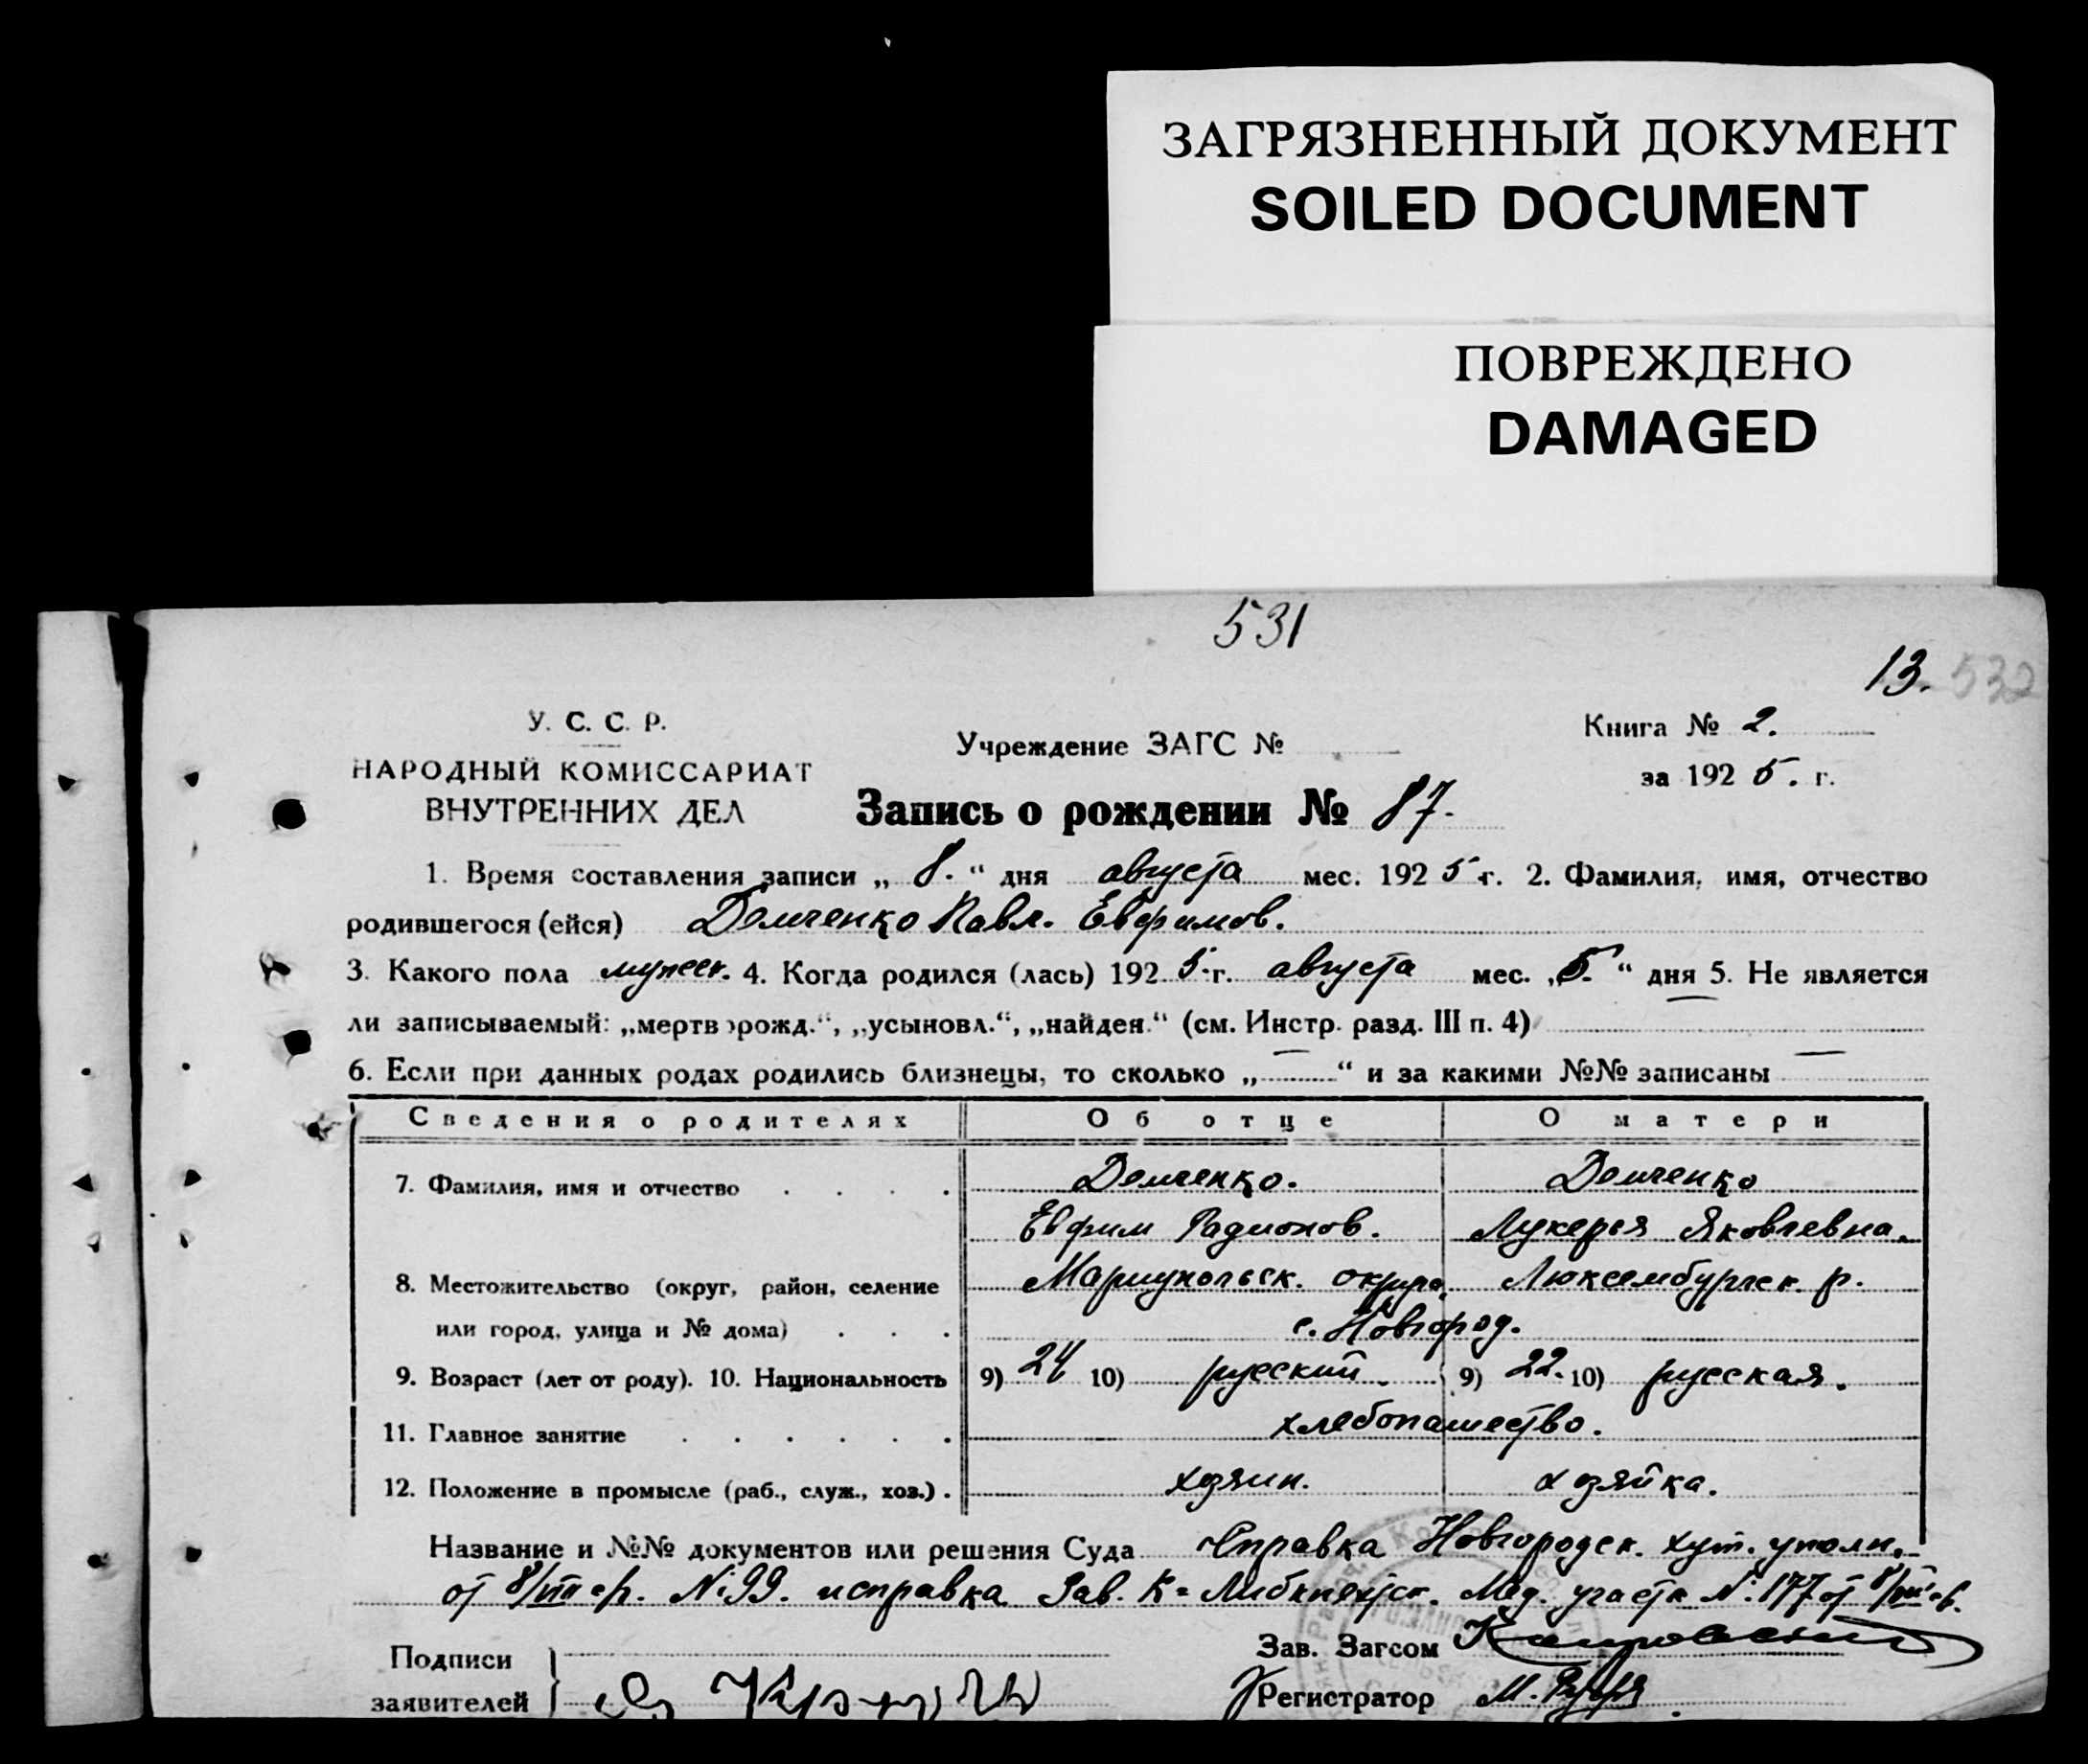 ЗАГРЯЗНЕННЫЙ ДОКУМЕНТ
SOILED DOCUMENT
ПОВРЕЖДЕНО
DAMAGED
531
13. 532
У. С. С. Р.
НАРОДНЫЙ КОМИССАРИАТ
ВНУТРЕННИХ ДЕЛ
Учреждение ЗАГС №
Книга № 2.
за 1925. г.
Запись о рождении № 87.
1. Время составления записи „ 8. “ дня августа мес. 1925 г. 2. Фамилия, имя, отчество
родившегося (ейся) Демченко Павл. Евфимов.
3. Какого пола мужеск. 4. Когда родился (лась) 1925 г. августа мес. „5.“ дня 5. Не является
ли записываемый: „мертворожд.“, „усыновл.“, „найден.“ (см. Инстр. разд. III п. 4)
6. Если при данных родах родились близнецы, то сколько „—“ и за какими №№ записаны —
Сведения о родителях Об отце О матери
7. Фамилия, имя и отчество . . . . Демченко. Демченко
Евфим Радионов. Лукерья Яковлевна.
8. Местожительство (округ, район, селение Мариупольск. округа, Люксембургск. р.
или город, улица и № дома) . . . с. Новгород.
9. Возраст (лет от роду). 10. Национальность 9) 24 10) русский. 9) 22. 10) русская.
11. Главное занятие . . . . . . хлебопашество.
12. Положение в промысле (раб., служ., хоз.) . хозяин. хозяйка.
Название и №№ документов или решения Суда Справка Новгородск. хут. уполн.
от 8/VIII с/г. №99. исправка Зав. К= Либкнехтск. Мед. участк №:177 от 8/VIII
Подписи
заявителей
Зав. Загсом
Регистратор М.